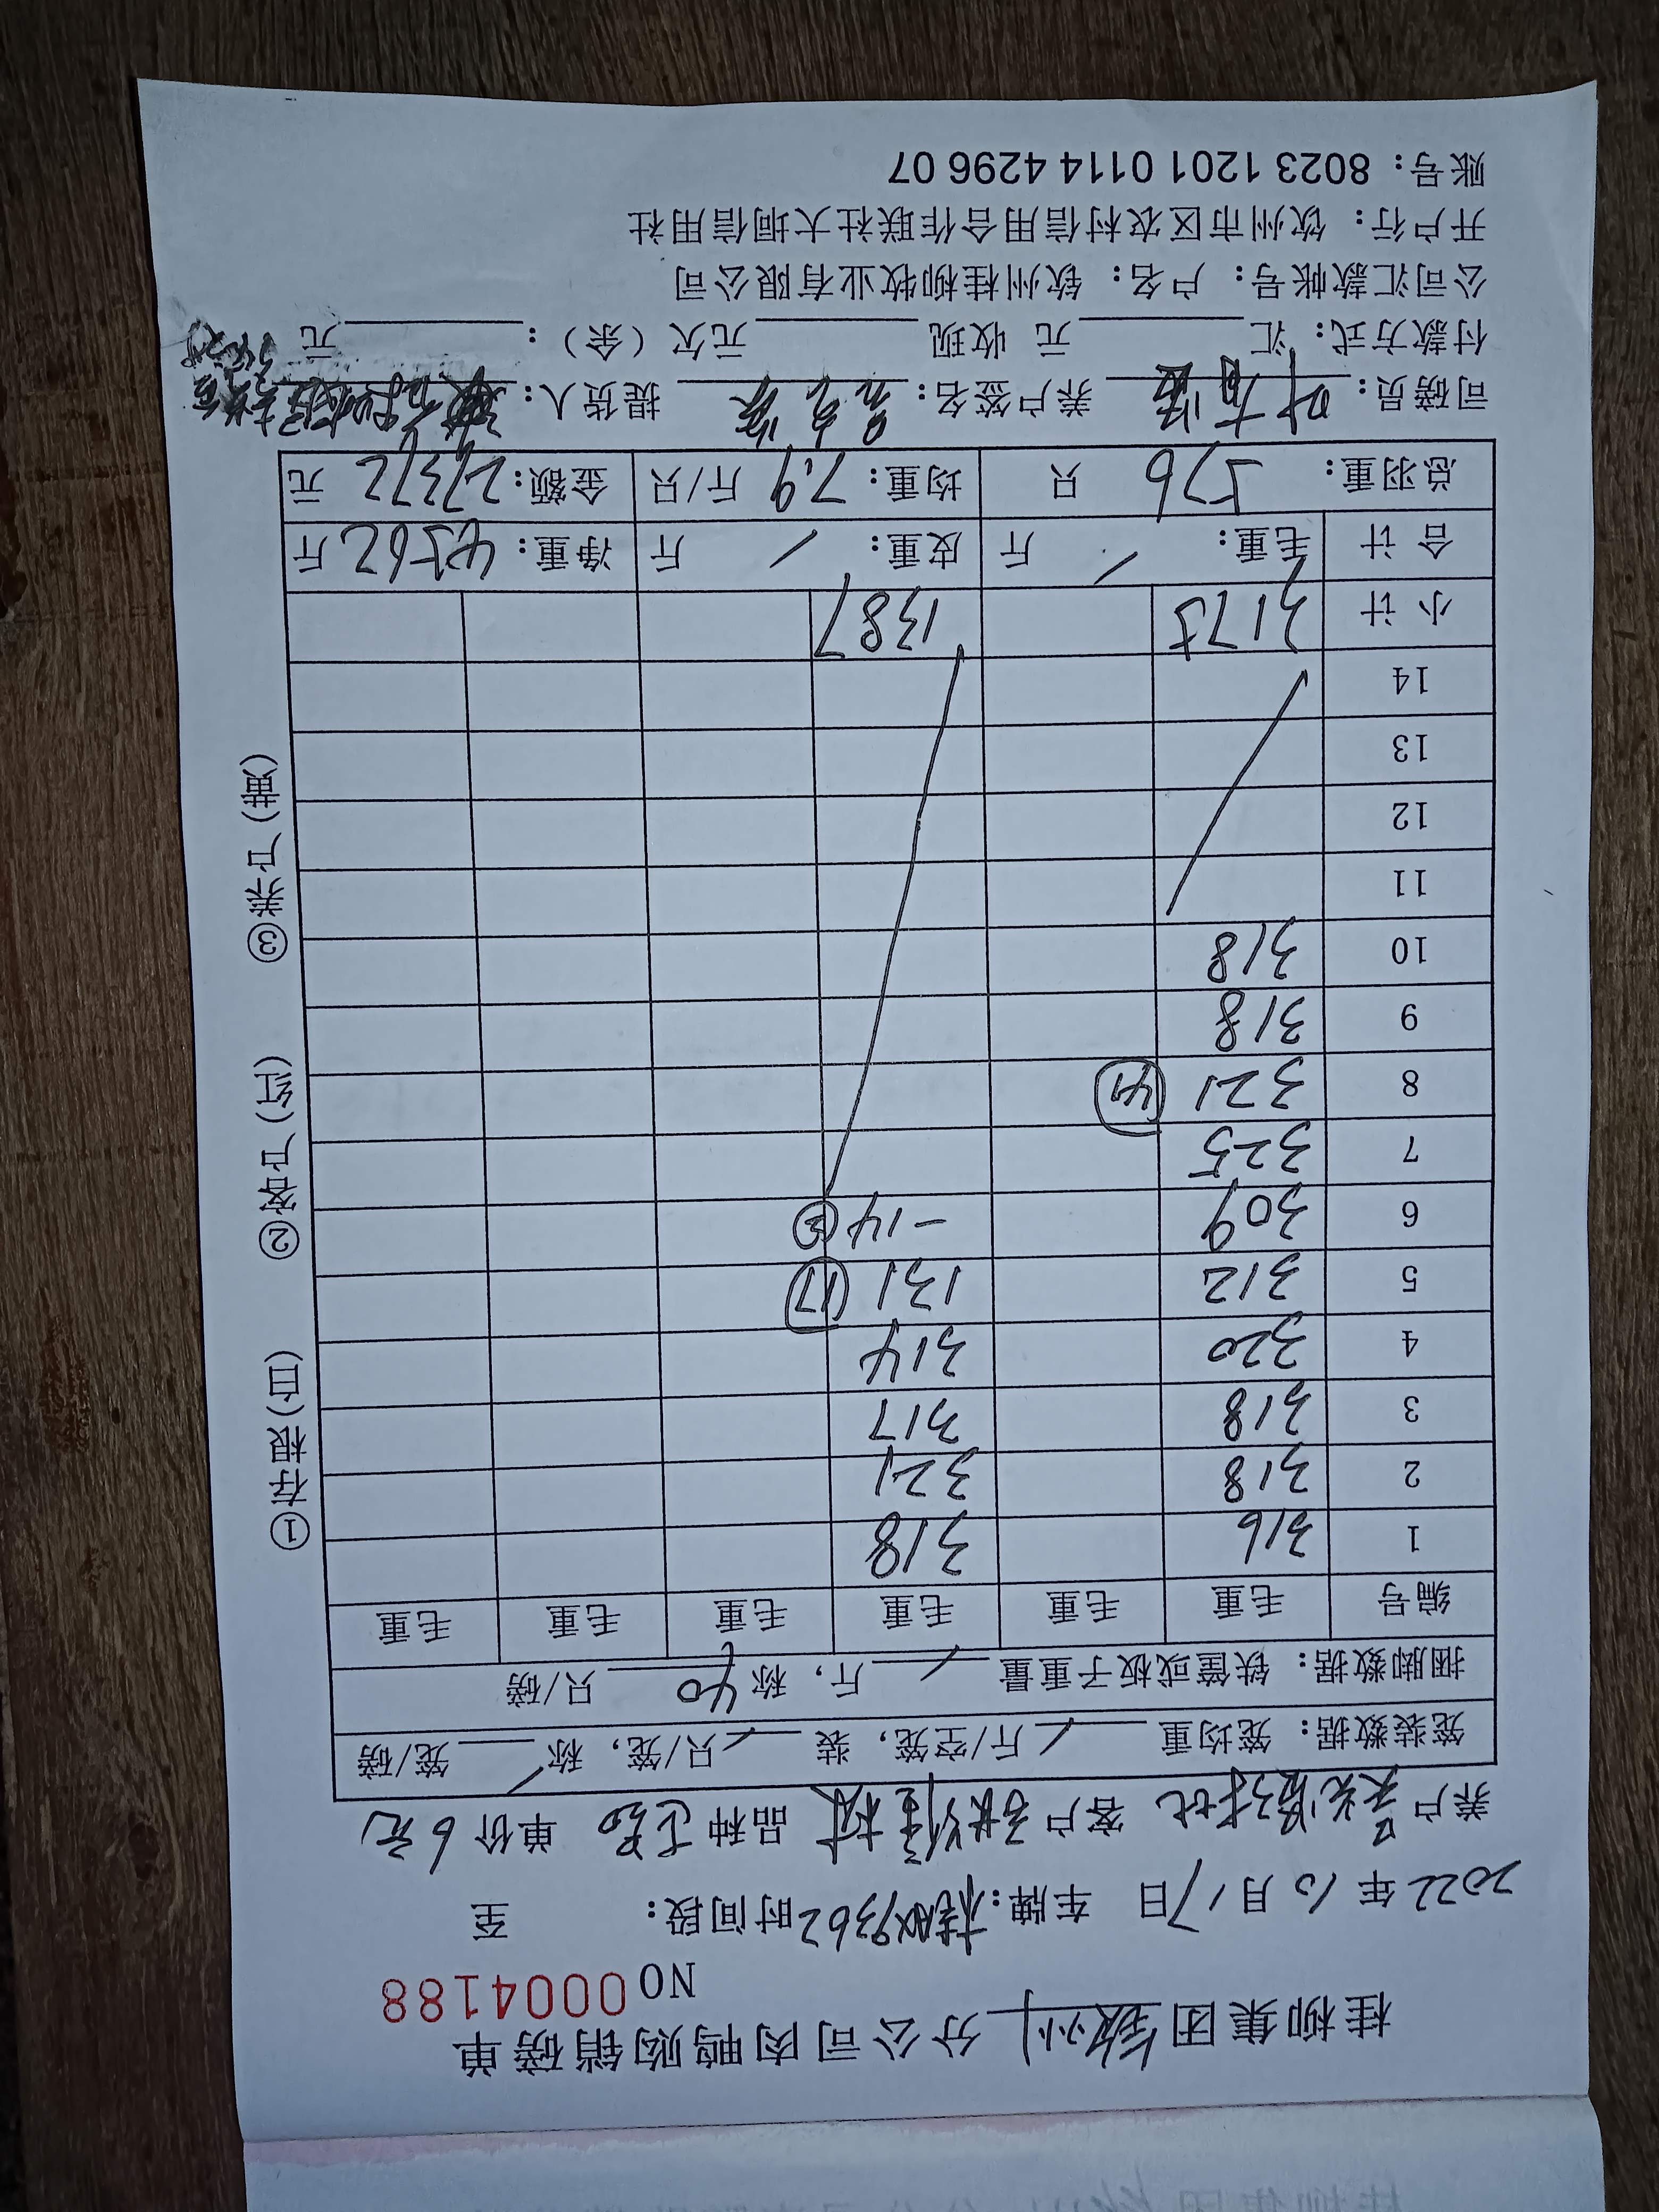 桂柳集团钦州分公司肉鸭购销磅单
NO 0004188
2022年10月17日 车牌:桂 9362 时间段: 至
养户 客户 品种 单价6元
笼装数据: 笼均重 / 斤/空笼, 装 / 只/笼, 称 / 笼/磅
捆脚数据: 铁筐或板子重量 / 斤, 称 40 只/磅
编号 毛重 毛重 毛重 毛重 毛重 毛重
1 316 318
2 318 321
3 318 317
4 320 314
5 312 131 (17)
6 309 -14
7 325
8 321 (41)
9 318
10 318
11
12
13
14
小计 3175 1387
合计 毛重: / 斤 皮重: / 斤 净重: 4562 斤
总羽重: 576 只 均重: 7.9 斤/只 金额: 27372 元
司磅员: 叶 养户签名: 提货人:
付款方式: 汇 元 收现 元欠(余): 元
公司汇款帐号: 户名: 钦州桂柳牧业有限公司
开户行: 钦州市区农村信用合作联社大垌信用社
账号: 8023 1201 0114 4296 07
①存根(白) ②客户(红) ③养户(黄)